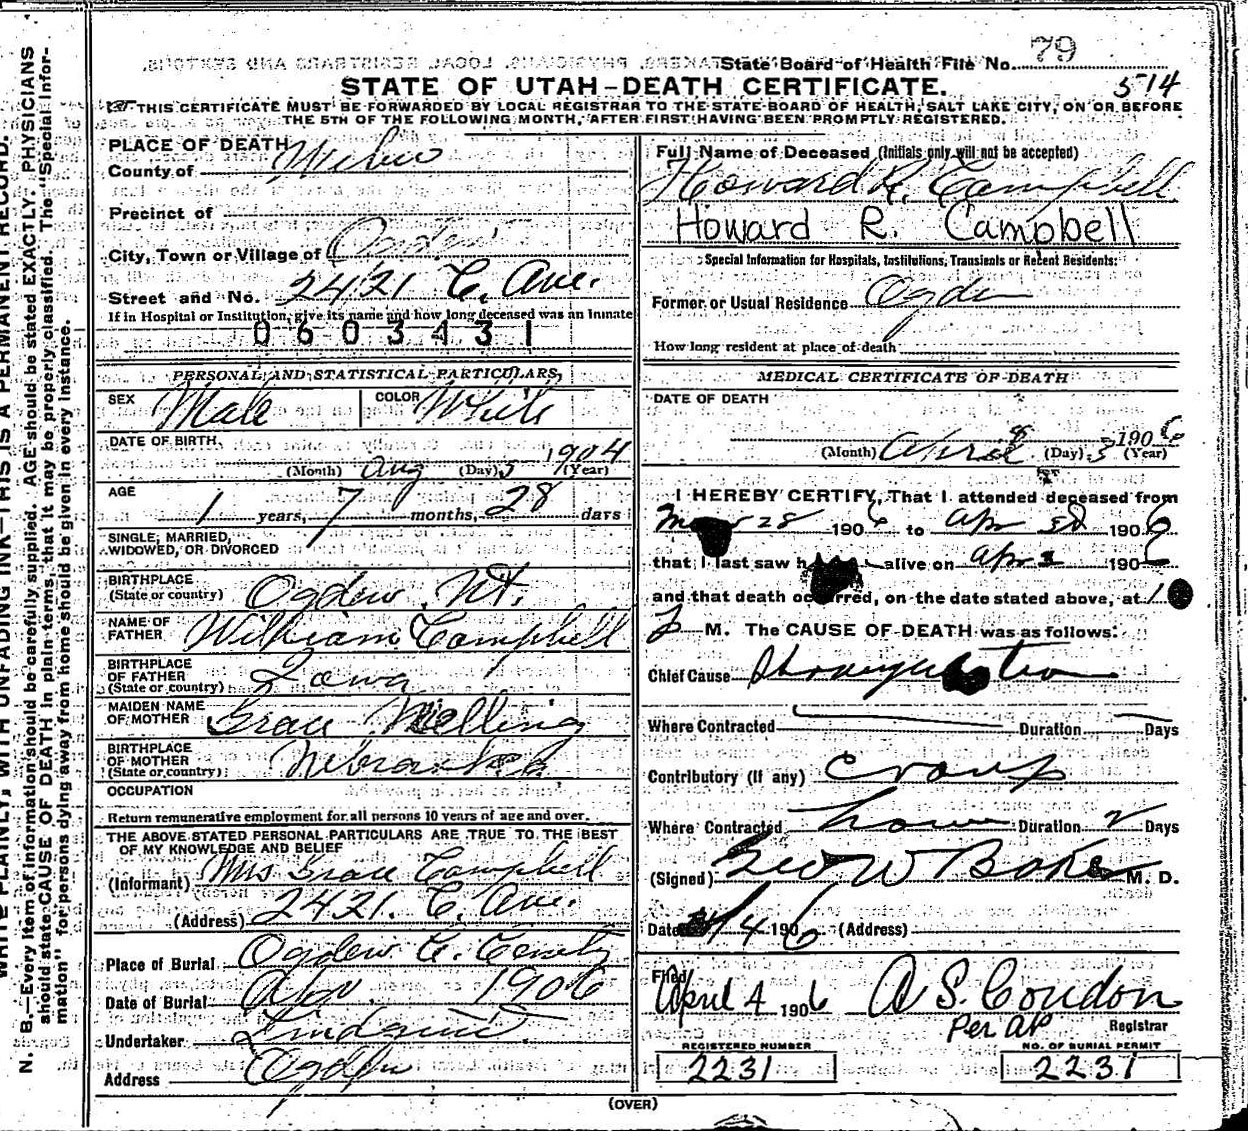 State Board of Health File No. 79
514
STATE OF UTAH—DEATH CERTIFICATE.
THIS CERTIFICATE MUST BE FORWARDED BY LOCAL REGISTRAR TO THE STATE BOARD OF HEALTH, SALT LAKE CITY, ON OR BEFORE
THE 5TH OF THE FOLLOWING MONTH, AFTER FIRST HAVING BEEN PROMPTLY REGISTERED.
PLACE OF DEATH
County of Weber
Precinct of
City, Town or Village of Ogden
Street and No. 2421 C. Ave.
If in Hospital or Institution, give its name and how long deceased was an Inmate
0603431
PERSONAL AND STATISTICAL PARTICULARS,
SEX Male COLOR White
DATE OF BIRTH.
(Month) Aug (Day) 5 1904 (Year)
AGE
1 years, 7 months, 28 days
SINGLE, MARRIED,
WIDOWED, OR DIVORCED
BIRTHPLACE
(State or country) Ogden Ut.
NAME OF
FATHER William Campbell
BIRTHPLACE
OF FATHER
(State or country) Iowa
MAIDEN NAME
OF MOTHER Grace Melling
BIRTHPLACE
OF MOTHER
(State or country) Nebraska
OCCUPATION
Return remunerative employment for all persons 10 years of age and over.
THE ABOVE STATED PERSONAL PARTICULARS ARE TRUE TO THE BEST
OF MY KNOWLEDGE AND BELIEF
(Informant) Mrs Grace Campbell
(Address) 2421. C. Ave.
Place of Burial Ogden C.
Date of Burial 1906
Undertaker
Address Ogden
Full Name of Deceased (Initials only will not be accepted)
Howard R. Campbell
Howard R. Campbell
Special Information for Hospitals, Institutions, Transients or Recent Residents:
Former or Usual Residence Ogden
How long resident at place of death
MEDICAL CERTIFICATE OF DEATH
DATE OF DEATH
(Month) April (Day) 3 1906 (Year)
I HEREBY CERTIFY, That I attended deceased from
28 1906 to Apr 3d 1906
that I last saw h alive on Apr 3 1906
and that death occurred, on the date stated above, at 1
M. The CAUSE OF DEATH was as follows:
Chief Cause
Where Contracted Duration Days
Contributory (If any) Croup
Where Contracted home Duration 2 Days
(Signed) Geo W Baker M. D.
Date 4/4 1906 (Address)
Filed
April 4 1906 A S. Condon
Per AP Registrar
REGISTERED NUMBER
2231
NO. OF BURIAL PERMIT
2231
(OVER)
WRITE PLAINLY, WITH UNFADING INK—THIS IS A PERMANENT RECORD.
N. B.—Every item of information should be carefully supplied. AGE should be stated EXACTLY. PHYSICIANS
should state CAUSE OF DEATH in plain terms, that it may be properly classified. The "Special Infor-
mation" for persons dying away from home should be given in every instance.